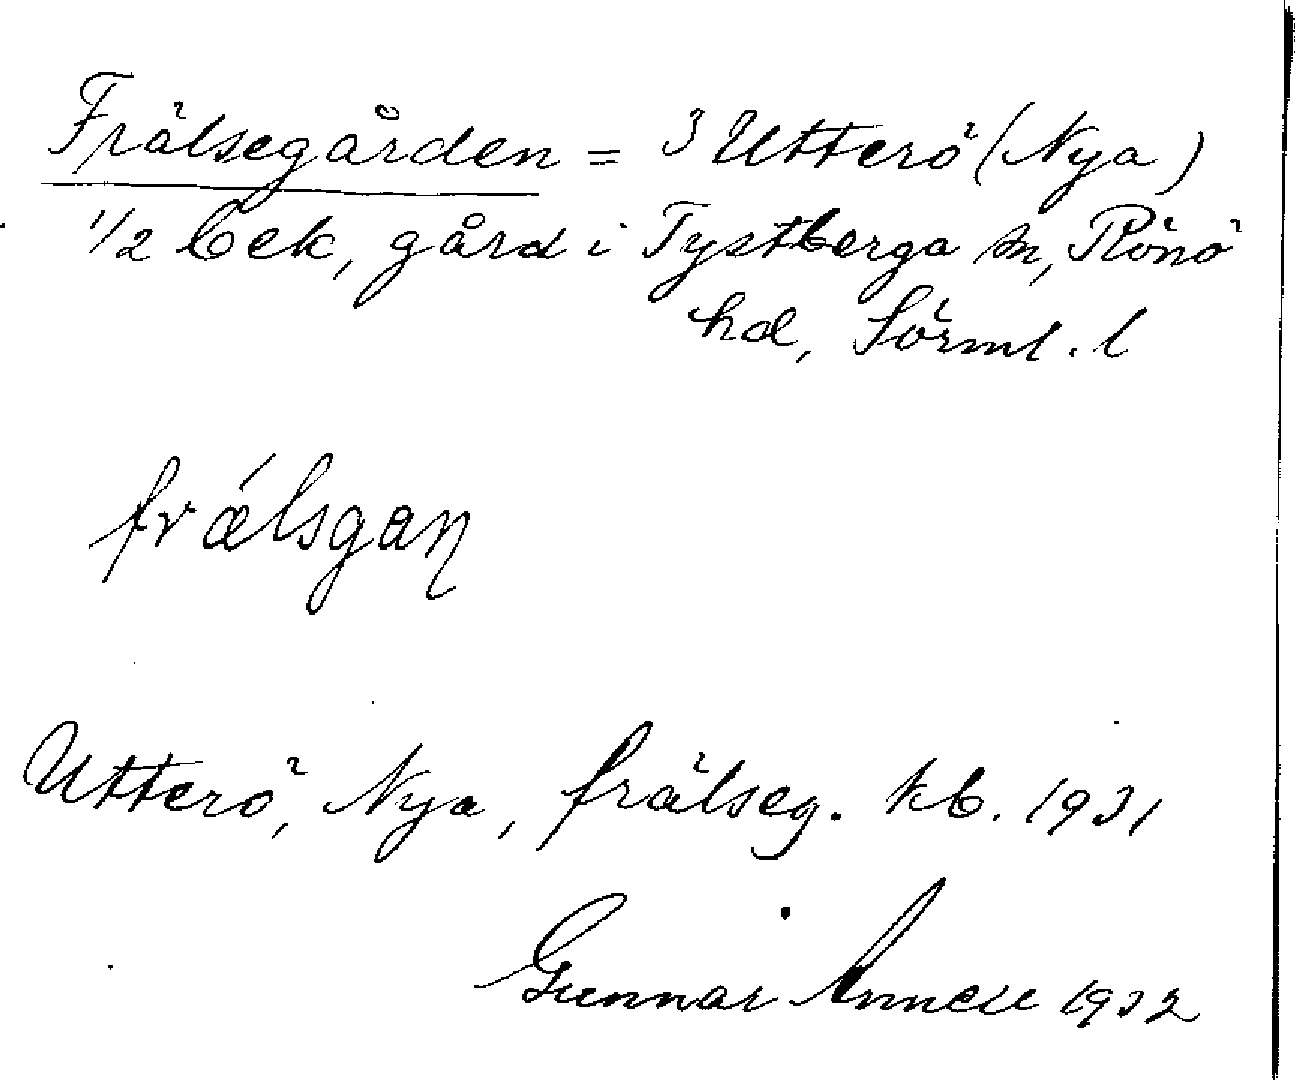 Frälsegården = 3 Utterö (Nya)
1/2 bek, gård i Tystberga sn, Rönö
hd, Sörml. l
frǽlsgaɳ
Utterö, Nya, frälseg. kb. 1931
Gunnar Annell 1932